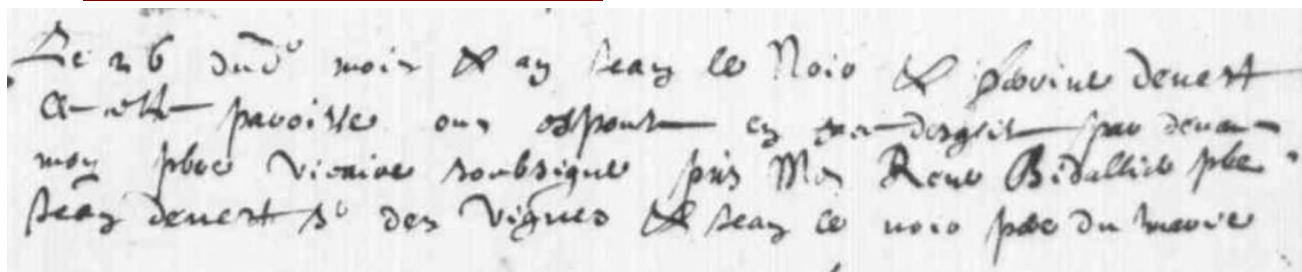 Le 26 dud mois & an Jean le Noir & Perrine Deuest
parroisse ont espousé en par deuan
moy pbre vicaire soubsigné pns M Rene Bidallier pbre
Jean Deuest sr des Vignes & Jean le noir pere du marié